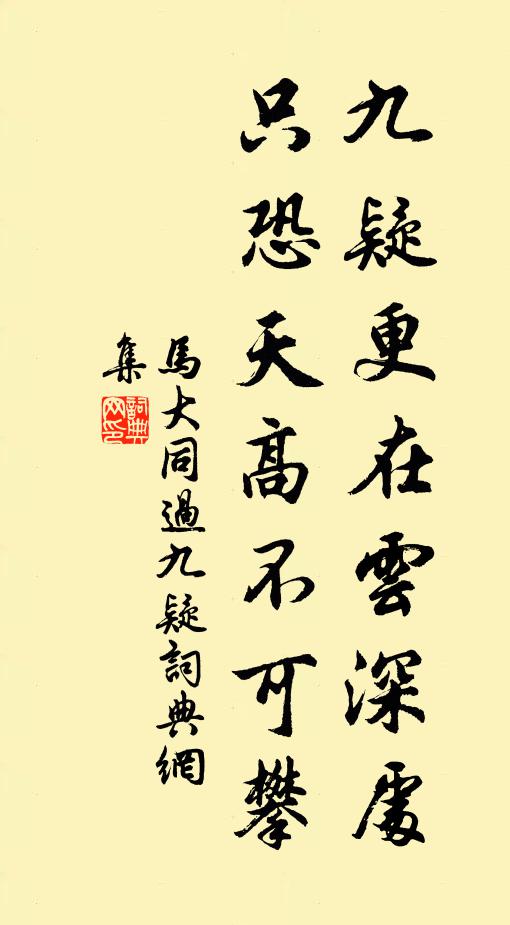 九疑更在雲深處
只恐天高不可攀
馬大同過九疑詞典網
集
詞典網印